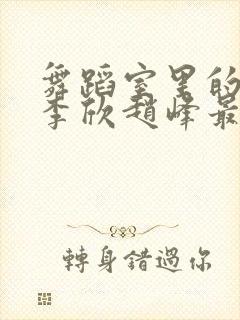 舞蹈室里的
李欣赵峰最
轉身錯過你